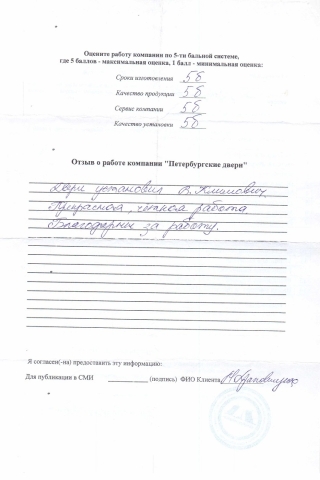 Оцените работу компании по 5-ти бальной системе,
где 5 баллов - максимальная оценка, 1 балл - минимальная оценка:
Сроки изготовления 5б
Качество продукции 5б
Сервис компании 5б
Качество установки 5б
Отзыв о работе компании "Петербургские двери"
Двери установил В. Климович.
Прекрасная, чёткая работа.
Благодарны за работу.
Я согласен(-на) предоставить эту информацию:
Для публикации в СМИ ____________ (подпись) ФИО Клиента